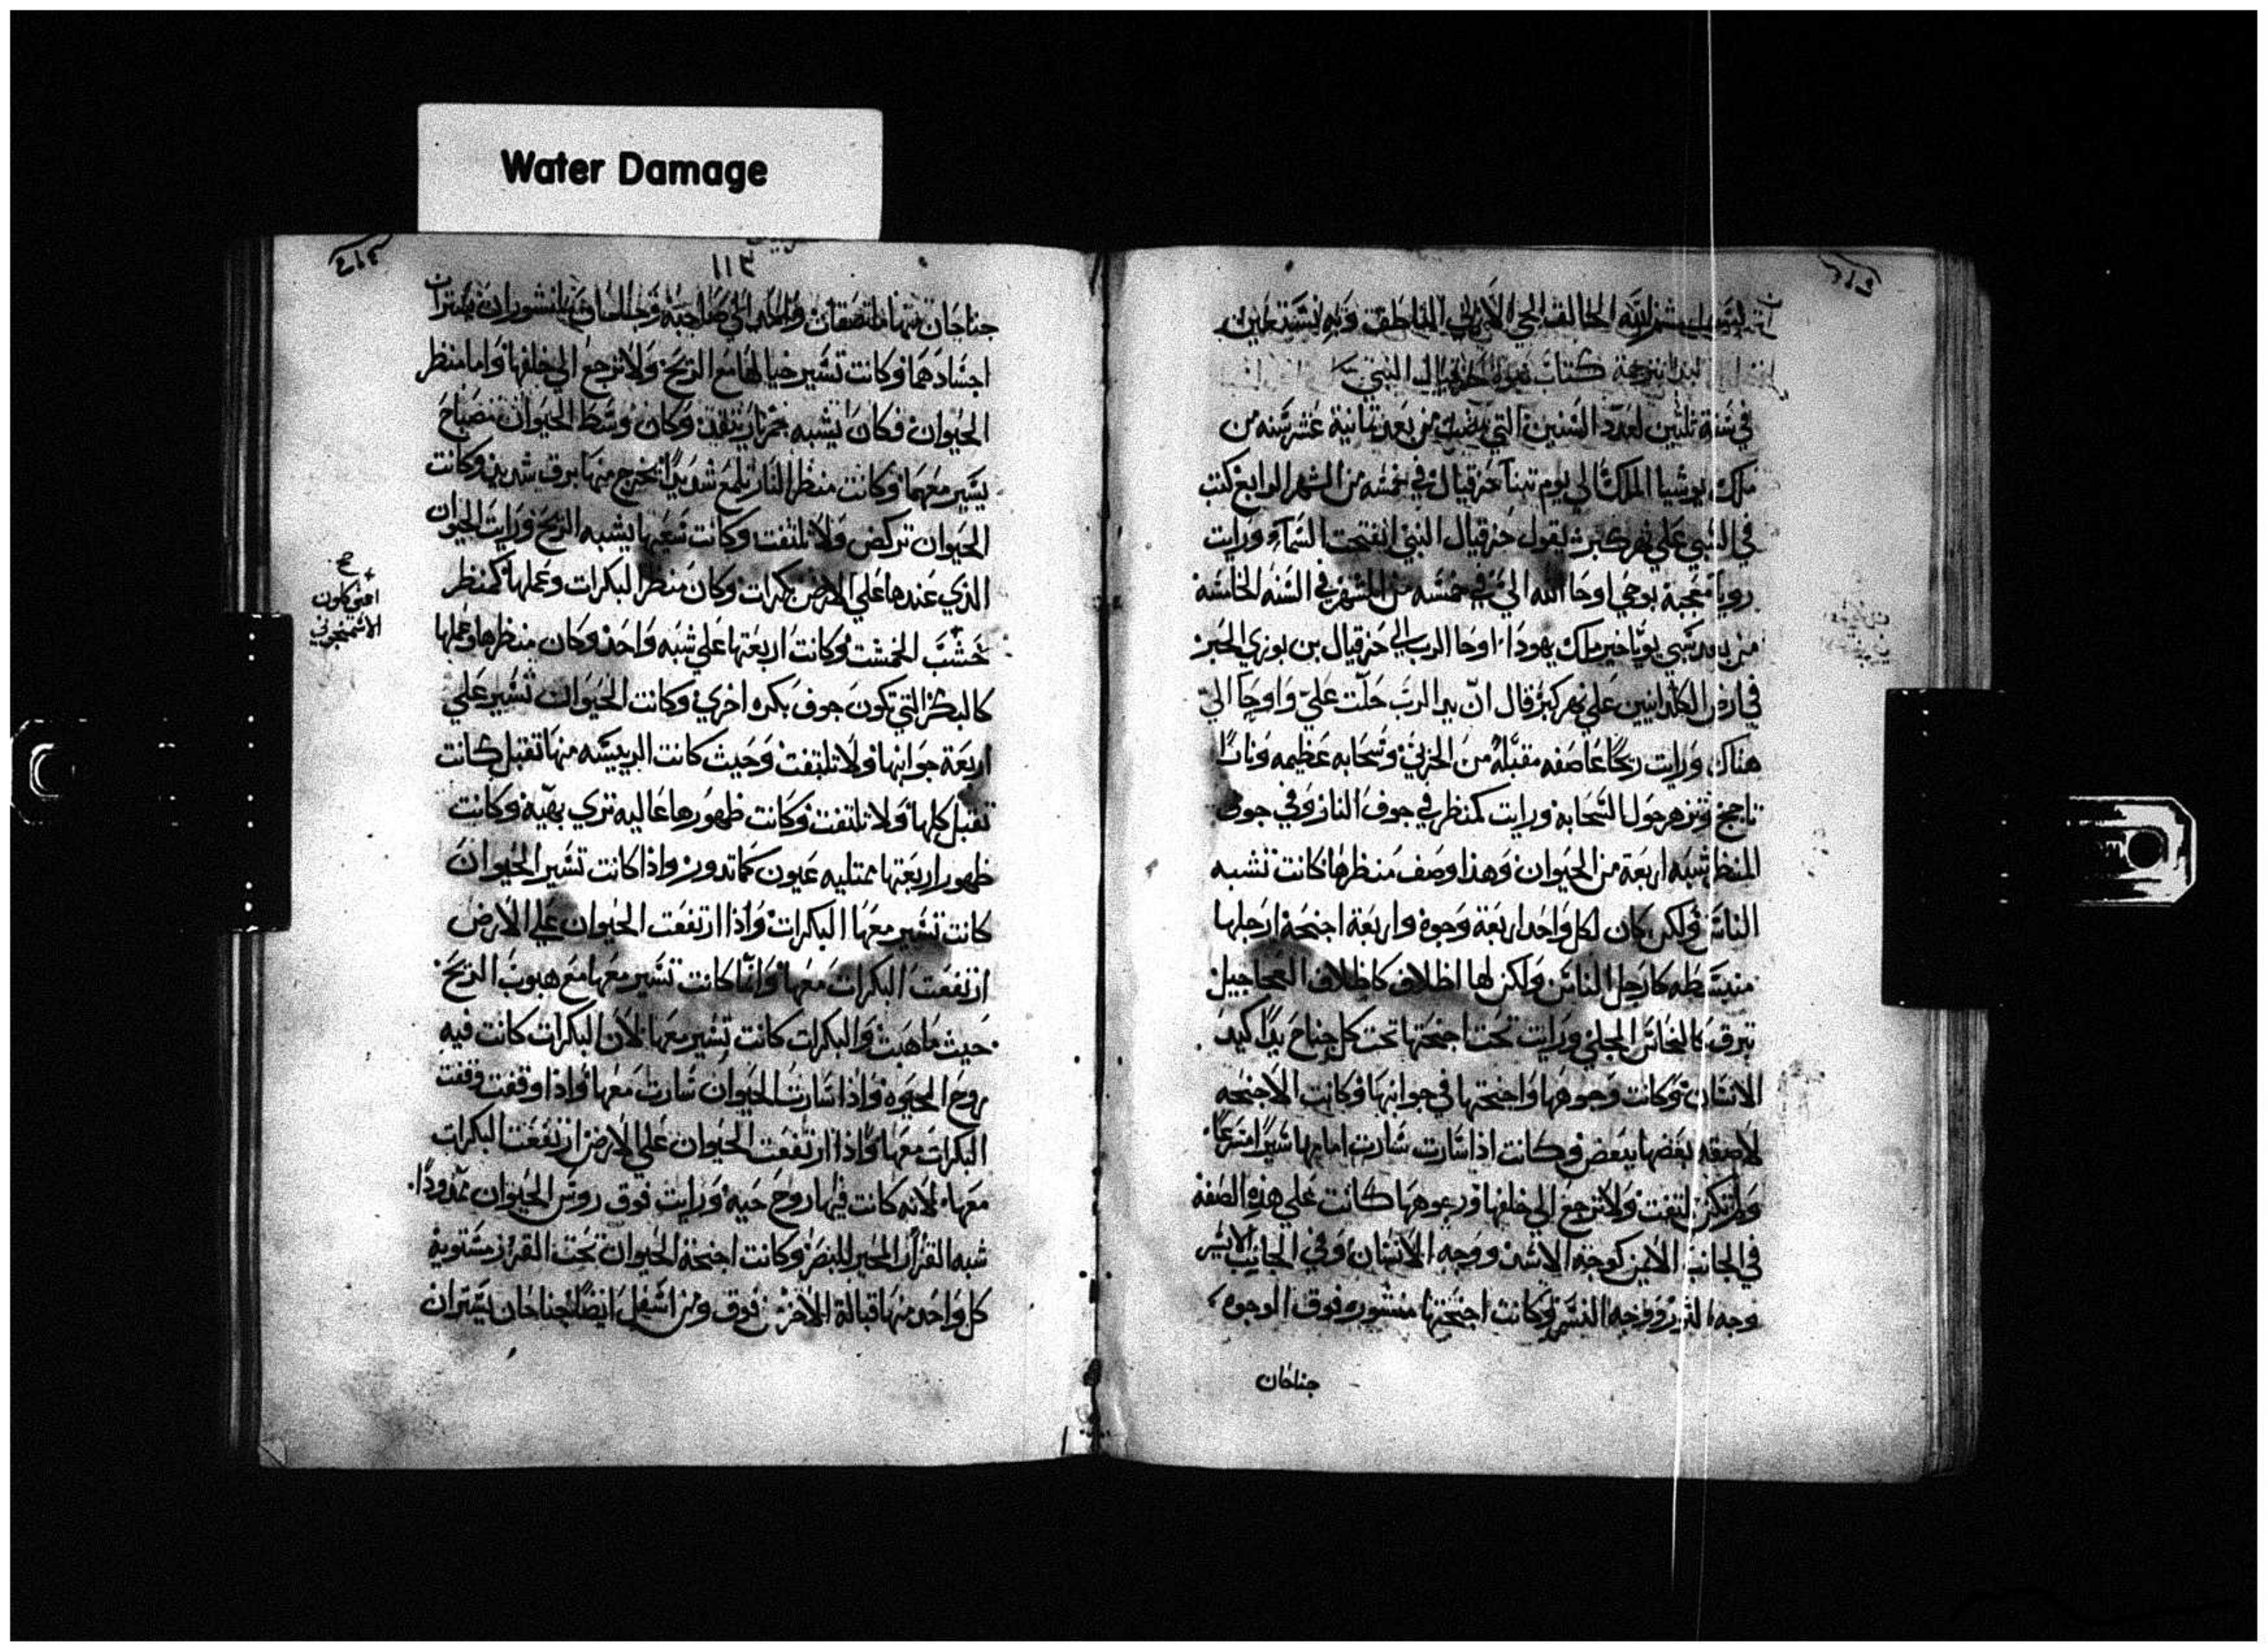 Water Damage
بسم الله الخالق الحي الازلي الناطق وبه نستعين
نبدا بترجمة كتاب نبوة حزقيال النبي
في سنة ثلثين لعدد السنين التي من بعد ثمانية عشر سنه من
ملك يوشيا الملك الي يوم تنبا حزقيال في خمسه من الشهر الرابع كنت
في السبي علي نهر كبر يقول حزقيال النبي انفتحت السماء ورايت
رويا معجبة بوحي اوحا الله الي في خمسه من الشهر في السنه الخامسة
من بعد سبي يوياخير ملك يهودا اوحا الرب الي حزقيال بن بوزي الحبر
في ارض الكلدانيين علي نهر كبر قال ان يد الرب حلت علي واوحا الي
هناك ورايت ريحا عاصفه مقبله من الحربي وسحابه عظيمه ونارا
تاجج وتزهر حول السحابه ورايت كمنظر في جوف النار وفي جوف
المنظر شبه اربعة من الحيوان وهذا وصف منظرها كانت تشبه
الناس ولكن كان لكل واحد اربعة وجوه واربعة اجنحة ارجلها
منبسطه كارجل الناس ولكن لها اظلاف كاظلاف العجاجيل
تبرق كالنحاس المجلي ورايت تحت اجنحتها تحت كل جناح يدا كيد
الانسان وكانت وجوهها واجنحتها في جوانبها وكانت الاجنحه
لاصقه بعضها ببعض وكانت اذا سارت سارت امامها سيرا مسرعا
ولم تكن تلتفت ولا ترجع الي خلفها ووجوهها كانت علي هذه الصفه
في الجانب الايمن كوجه الاسد ووجه الانسان وفي الجانب الايسر
وجه الثور ووجه النسر وكانت اجنحتها منشوره فوق الوجوه
جناحان
١١٣
جناحان منها ملتصقان واحد الي صاحبه وجناحان منشوران يستران
اجسادهما وكانت تسير حيالها مع الريح ولا ترجع الي خلفها واما منظر
الحيوان فكان يشبه جمر نار يتقد وكان وسط الحيوان مصباح
يسير معهما وكانت منظر النار تلمع شديدا تخرج منها برق شديد وكانت
الحيوان تركض ولا تلتفت وكانت سعيها يشبه الريح ورايت الحيوان
الذي عندها علي الارض بكرات وكان منظر البكرات وعملها كمنظر
خشب الخمشت وكانت اربعتها علي شبه واحد وكان منظرها وعملها
كالبكر التي تكون جوف بكره اخري وكانت الحيوان تسير علي
اربعة جوانبها ولا تلتفت وحيث كانت الرييسه منها تقبل كانت
تقبل كلها ولا تلتفت وكانت ظهورها عاليه تري بهيه وكانت
ظهور اربعتها ممتليه عيون كما تدور واذا كانت تسير الحيوان
كانت تسير معها البكرات واذا ارتفعت الحيوان علي الارض
ارتفعت البكرات معها وانما كانت تسير معها مع هبوب الريح
حيث ما هبت والبكرات كانت تسير معها لان البكرات كانت فيه
روح الحيوه واذا سارت الحيوان سارت معها واذا وقفت وقفت
البكرات معها واذا ارتفعت الحيوان علي الارض ارتفعت البكرات
معها لانه كانت فيها روح حيه ورايت فوق روس الحيوان ممدودا
شبه القزاز المحير للبصر وكانت اجنحة الحيوان تحت القزاز مستوية
كل واحد منها قبالة الاخر من فوق ومن اسفل ايضا جناحان يستران
صح
الاسمنجوني